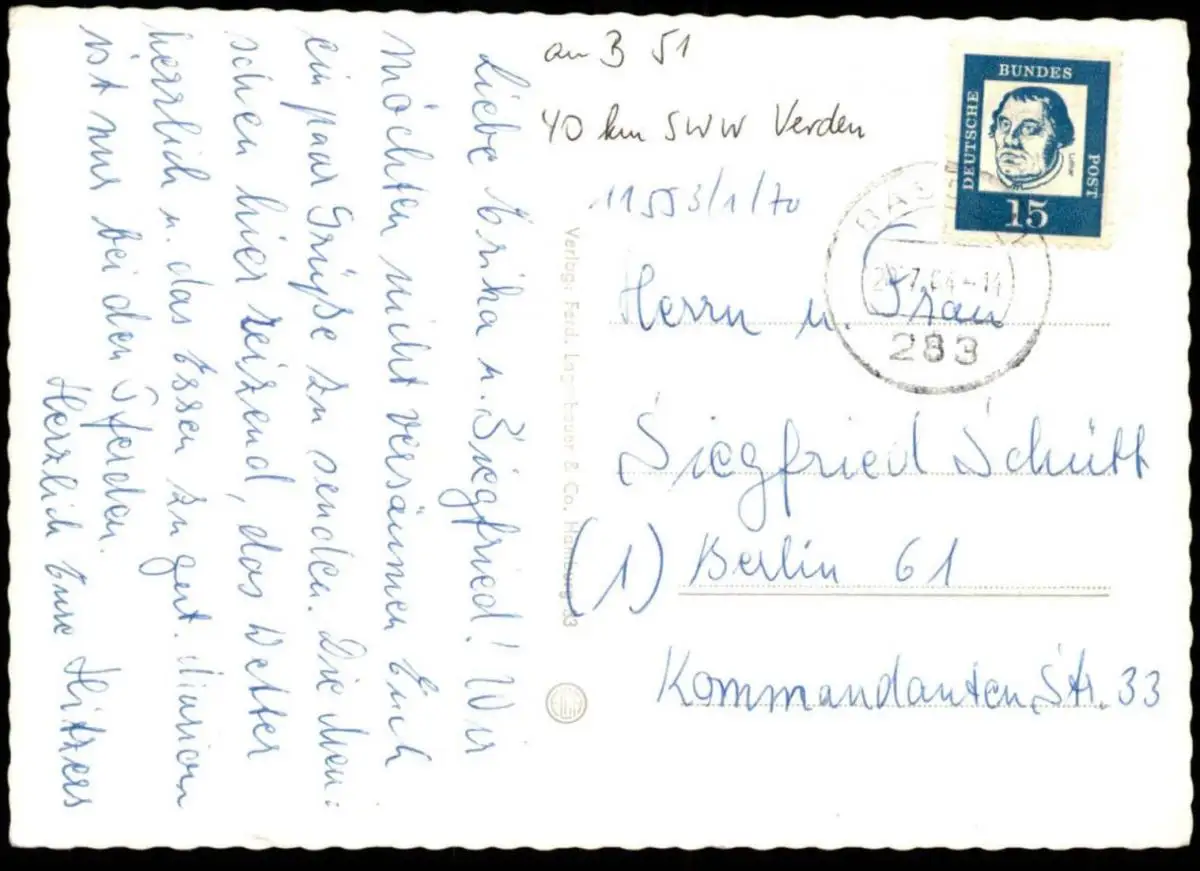 an B 51
40 km SWW Verden
11553/1/70
DEUTSCHE
BUNDES
POST
Luther
15
7.64-14
283
Liebe Erika u. Siegfried! Wir
möchten nicht versäumen Euch
ein paar Grüße zu senden. Die Men:
schen hier reizend, das Wetter
herrlich u. das Essen zu gut. Marion
ist nur bei den Pferden.
Herzlich Eure Hitzers
Verlag: Ferd. Lagerbauer & Co. Hamburg 33
Herrn u. Frau
Siegfried Schütt
(1) Berlin 61
Kommandanten Str. 33